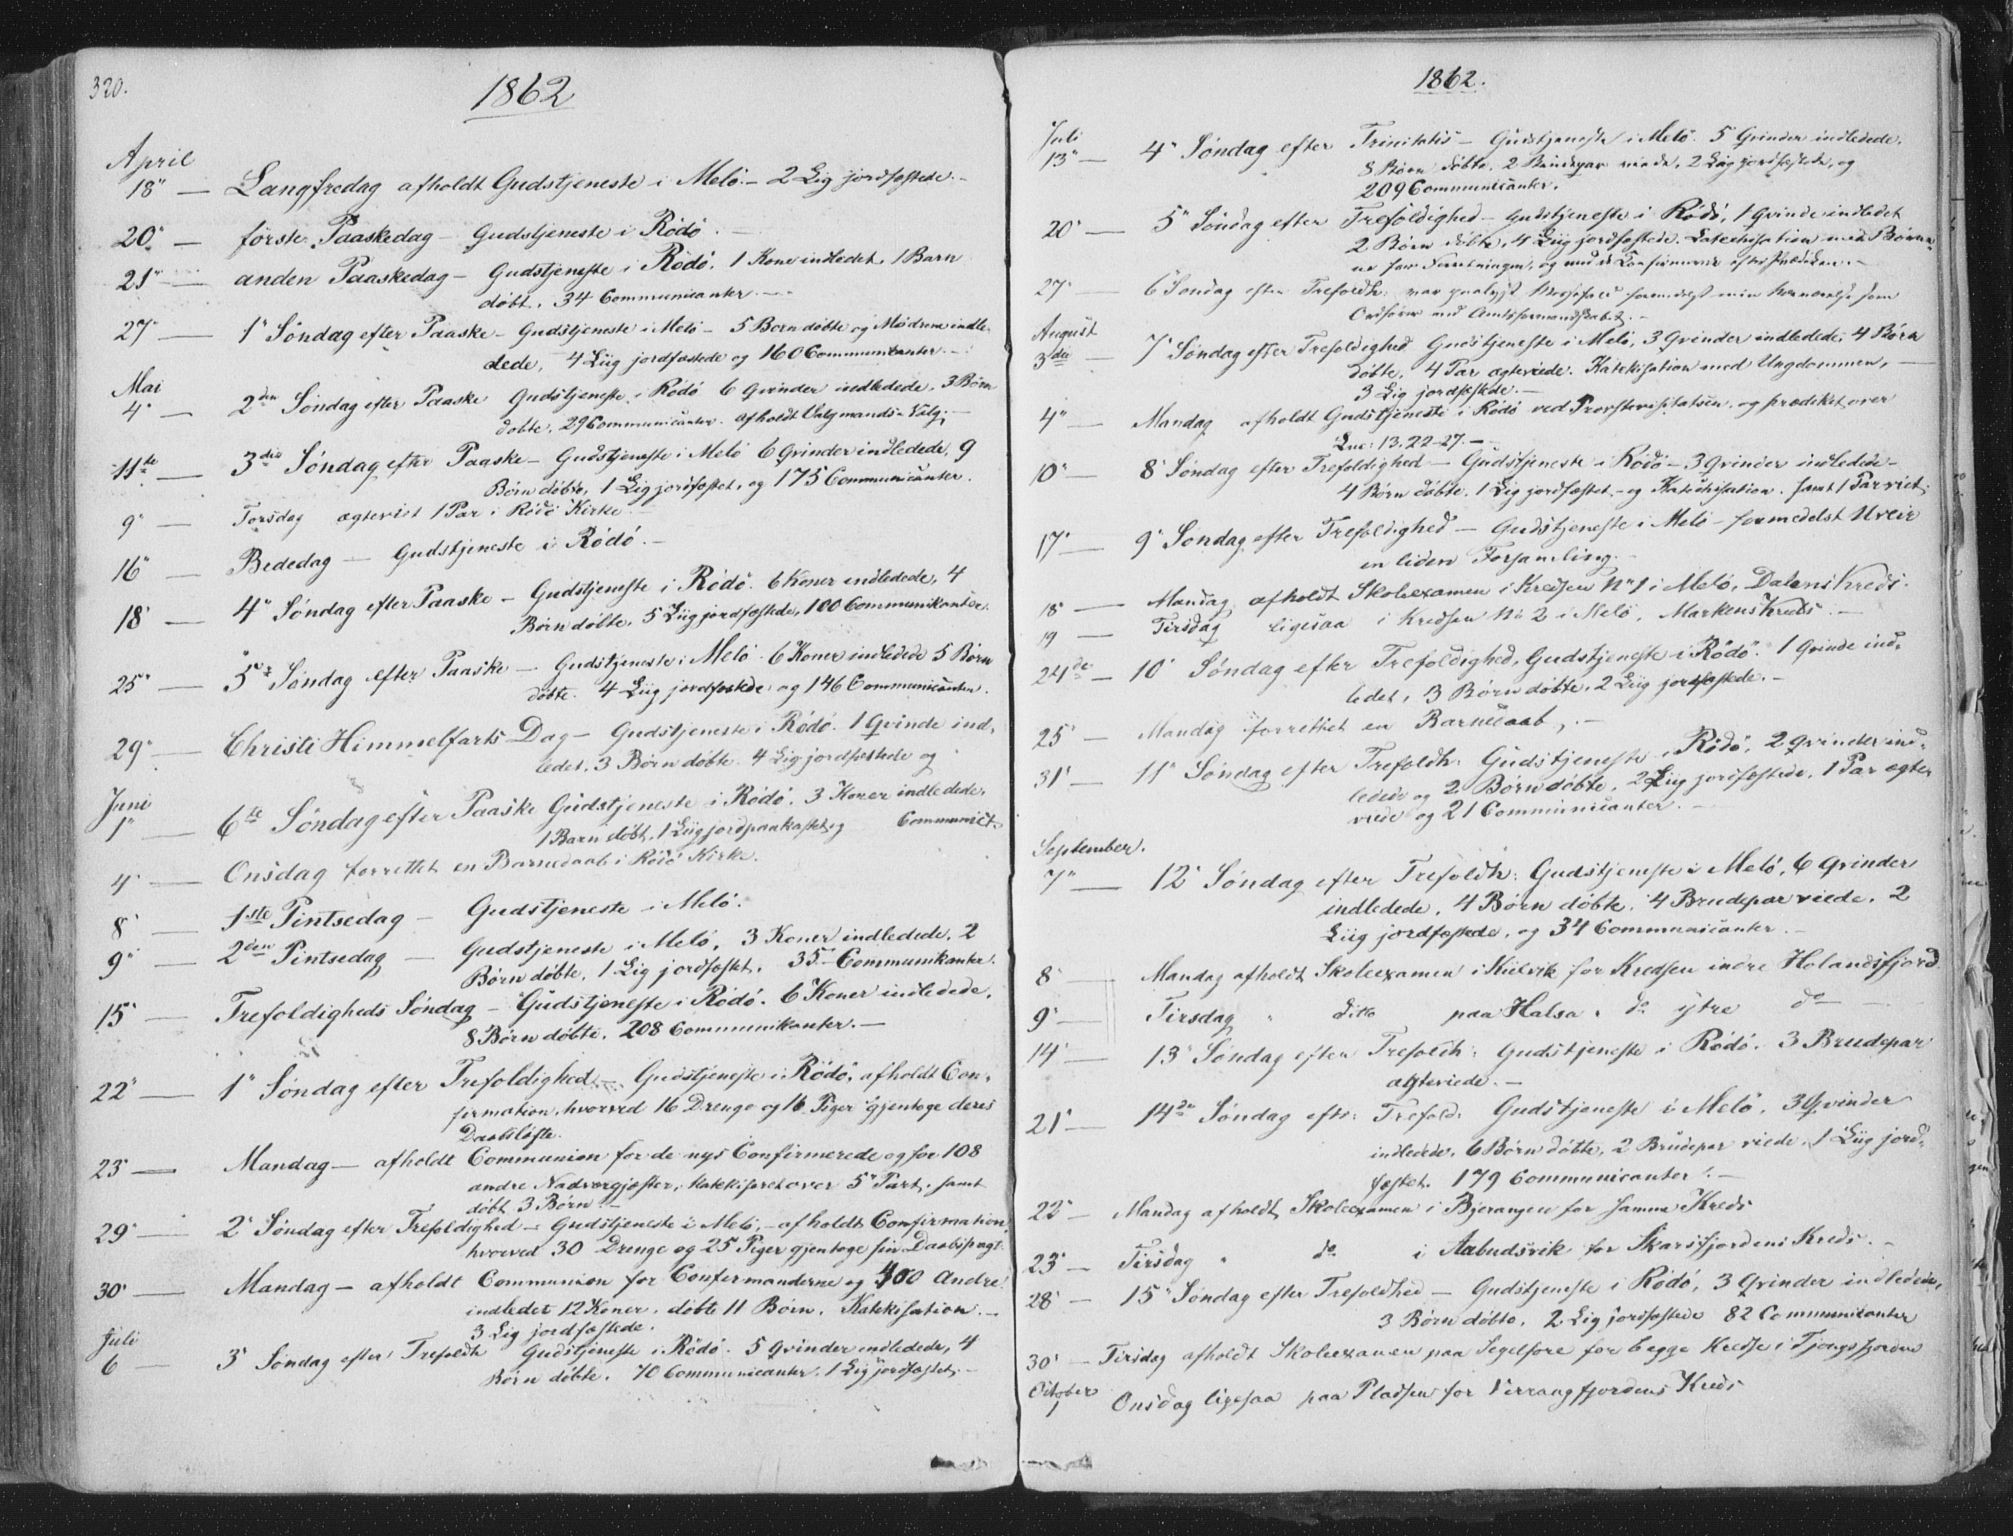 320.
1862
April
18" — Langfredag afholdt Gudstjeneste i Melö. – 2 Lig jordfæstede. –
20" — förste Paaskedag – Gudstjeneste i Rödö. –
21" — anden Paaskedag – Gudstjeneste i Rödö. 1 Kone indledet, 1 Barn
döbt. 34 Communicanter. —
27" — 1" Söndag efter Paaske – Gudstjeneste i Melö – 5 Börn döbte og Mödrene indle-
dede, 4 Liig jordfæstede og 160 Communicanter. –
Mai
4" — 2den Söndag efter Paaske Gudstjeneste i Rödö 6 Qvinder indledede. 3 Börn
döbte. 29 Communicanter. afholdt Valgmands-Valg. –
11te — 3die Söndag efter Paaske – Gudstjeneste i Melö 6 Qvinder indledede, 9
Börn döbte, 1 Lig jordfæstet, og 175 Communicanter.
9" — Torsdag ægteviet 1 Par i Rödö Kirke. –
16" — Bededag – Gudstjeneste i Rödö. –
18" — 4" Söndag efter Paaske – Gudstjeneste i Rödö. 6 Koner indledede, 4
Börn döbte, 5 Liig jordfæstede, 100 Communikanter.
25" — 5te Söndag efter Paaske – Gudstjeneste i Melö. 6 Koner indledede 5 Börn
döbte. 4 Liig jordfæstede og 146 Communicanter.
29" — Christi Himmelfarts Dag – Gudstjeneste i Rödö. 1 Qvinde ind-
ledet, 3 Börn döbte. 4 Lig jordfæstede og
Juni
1" — 6te Söndag efter Paaske Gudstjeneste i Rödö. 3 Koner indledede,
1 Barn döbt, 1 Liig jordpaakastet og Communict.
4" — Onsdag forrettet en Barnedaab i Rödö Kirke.
8" — 1ste Pintsedag – Gudstjeneste i Melö.
9" — 2den Pintsedag – Gudstjeneste i Melö, 3 Koner indledede, 2
Börn döbte, 1 Lig jordfæstet, 35 Communikanter.
15" — Trefoldigheds Söndag – Gudstjeneste i Rödö. 6 Koner indledede,
8 Börn döbte. 208 Communikanter. –
22" — 1" Söndag efter Trefoldighed – Gudstjeneste i Rödö, afholdt Con-
firmation, hvorved 16 Drenge og 16 Piger gjentoge deres
Daabslöfte.
23" — Mandag – afholdt Communion for de nys Confirmerede og for 108
andre Nadvergjæster, katekiseret over 5" Part, samt
döbt 3 Börn. –
29" — 2" Söndag efter Trefoldighed – Gudstjeneste i Melö, – afholdt Confirmation
hvorved 30 Drenge og 25 Piger gjentoge sin Daabspagt.
30" — Mandag – afholdt Communion for Confirmanderne og 400 Andre
indledet 12 Koner, döbte 11 Börn, Katekisation. –
3 Lig jordfæstede.
Juli
6 — 3" Söndag efter Trefoldh Gudstjeneste i Rödö. 5 Qvinder indledede, 4
Börn döbte. 70 Communicanter. 1 Lig jordfæstet. –
1862.
Juli
13" — 4" Söndag efter Trinitatis – Gudstjeneste i Melö. 5 Qvinder indledede,
8 Börn döbte. 2 Brudepar viede, 2 Liig jordfæstede, og
209 Communicanter.
20" — 5" Söndag efter Trefoldighed – Gudstjeneste i Rödö, 1 Qvinde indledet
2 Börn döbte, 4 Liig jordfæstede. Catechisation med Börne-
ne før Forretningen, og med de Confirmerede efter Prædiken. –
27" — 6 Söndag efter Trefoldh. var Messefald formedelst min Nærværelse som
Ordförer ved Amtsformandskabet. –
August
3die — 7" Söndag efter Trefoldighed Gudstjeneste i Melö, 3 Qvinder indledede; 4 Börn
döbte, 4 Par ægteviede. Katekisation med Ungdommen, –
3 Lig jordfæstede. –
4" — Mandag afholdt Gudstjeneste i Rödö ved Provstevisitatsen, og prædiket over
Luc: 13. 22-27. –
10" — 8" Söndag efter Trefoldighed – Gudstjeneste i Rödö – 3 Qvinder indledede –
4 Börn döbte. 1 Lig jordfæstet – og Katekisation. samt 1 Par viet.
17" — 9" Söndag efter Trefoldighed – Gudstjeneste i Melö – formedelst Uveir
en liden Forsamling. –
18" — Mandag afholdt Skoleexamen i Kredsen No 1 i Melö, Dalens Kreds.
19 — Tirsdag ligesaa i Kredsen No 2 i Melö, Markens Kreds. –
24de — 10" Söndag efter Trefoldighed, Gudstjeneste i Rödö. 1 Qvinde ind-
ledet, 3 Börn döbte, 2 Liig jordfæstede. –
25" — Mandag forrettet en Barnedaab, –
31" — 11" Söndag efter Trefoldh. Gudstjeneste i Rödö, 2 Qvinder ind-
ledede og 2 Börn döbte, 2 Liig jordfæstede. 1 Par ægte-
viede og 21 Communicanter. –
September.
7" — 12" Söndag efter Trefoldh: Gudstjeneste i Melö, 6 Qvinder
indledede, 4 Börn döbte. 4 Brudepar viede, 2
Liig jordfæstede, og 34 Communicanter. –
8" — Mandag afholdt Skoleexamen i Kilvik for Kredsen indre Holandsfjord
9" — Tirsdag " ditto paa Halsa, do ytre do —
14" — 13" Söndag efter Trefoldh: Gudstjeneste i Rödö. 3 Brudepar
ægteviede. –
21" — 14de Söndag eft: Trefold: Gudstjeneste i Melö, 3 Qvinder
indledede. 6 Börn döbte, 2 Brudepar viede, 1 Liig jord-
fæstet. 179 Communicanter. –
22" — Mandag afholdt Skoleexamen i Bjerangen for samme Kreds
23" — Tirsdag " do i Aabudsvik for Skarsfjordens Kreds. –
28" — 15" Söndag efter Trefoldhed – Gudstjeneste i Rödö, 3 Qvinder indledede,
3 Börn döbte, 2 Lig jordfæstede 82 Communicanter
30" — Tirsdag afholdt Skoleexamen paa Segelfore for begge Kredse i Tjongsfjorden
October
1 Onsdag ligesaa paa Pladsen for Værrangfjordens Kreds